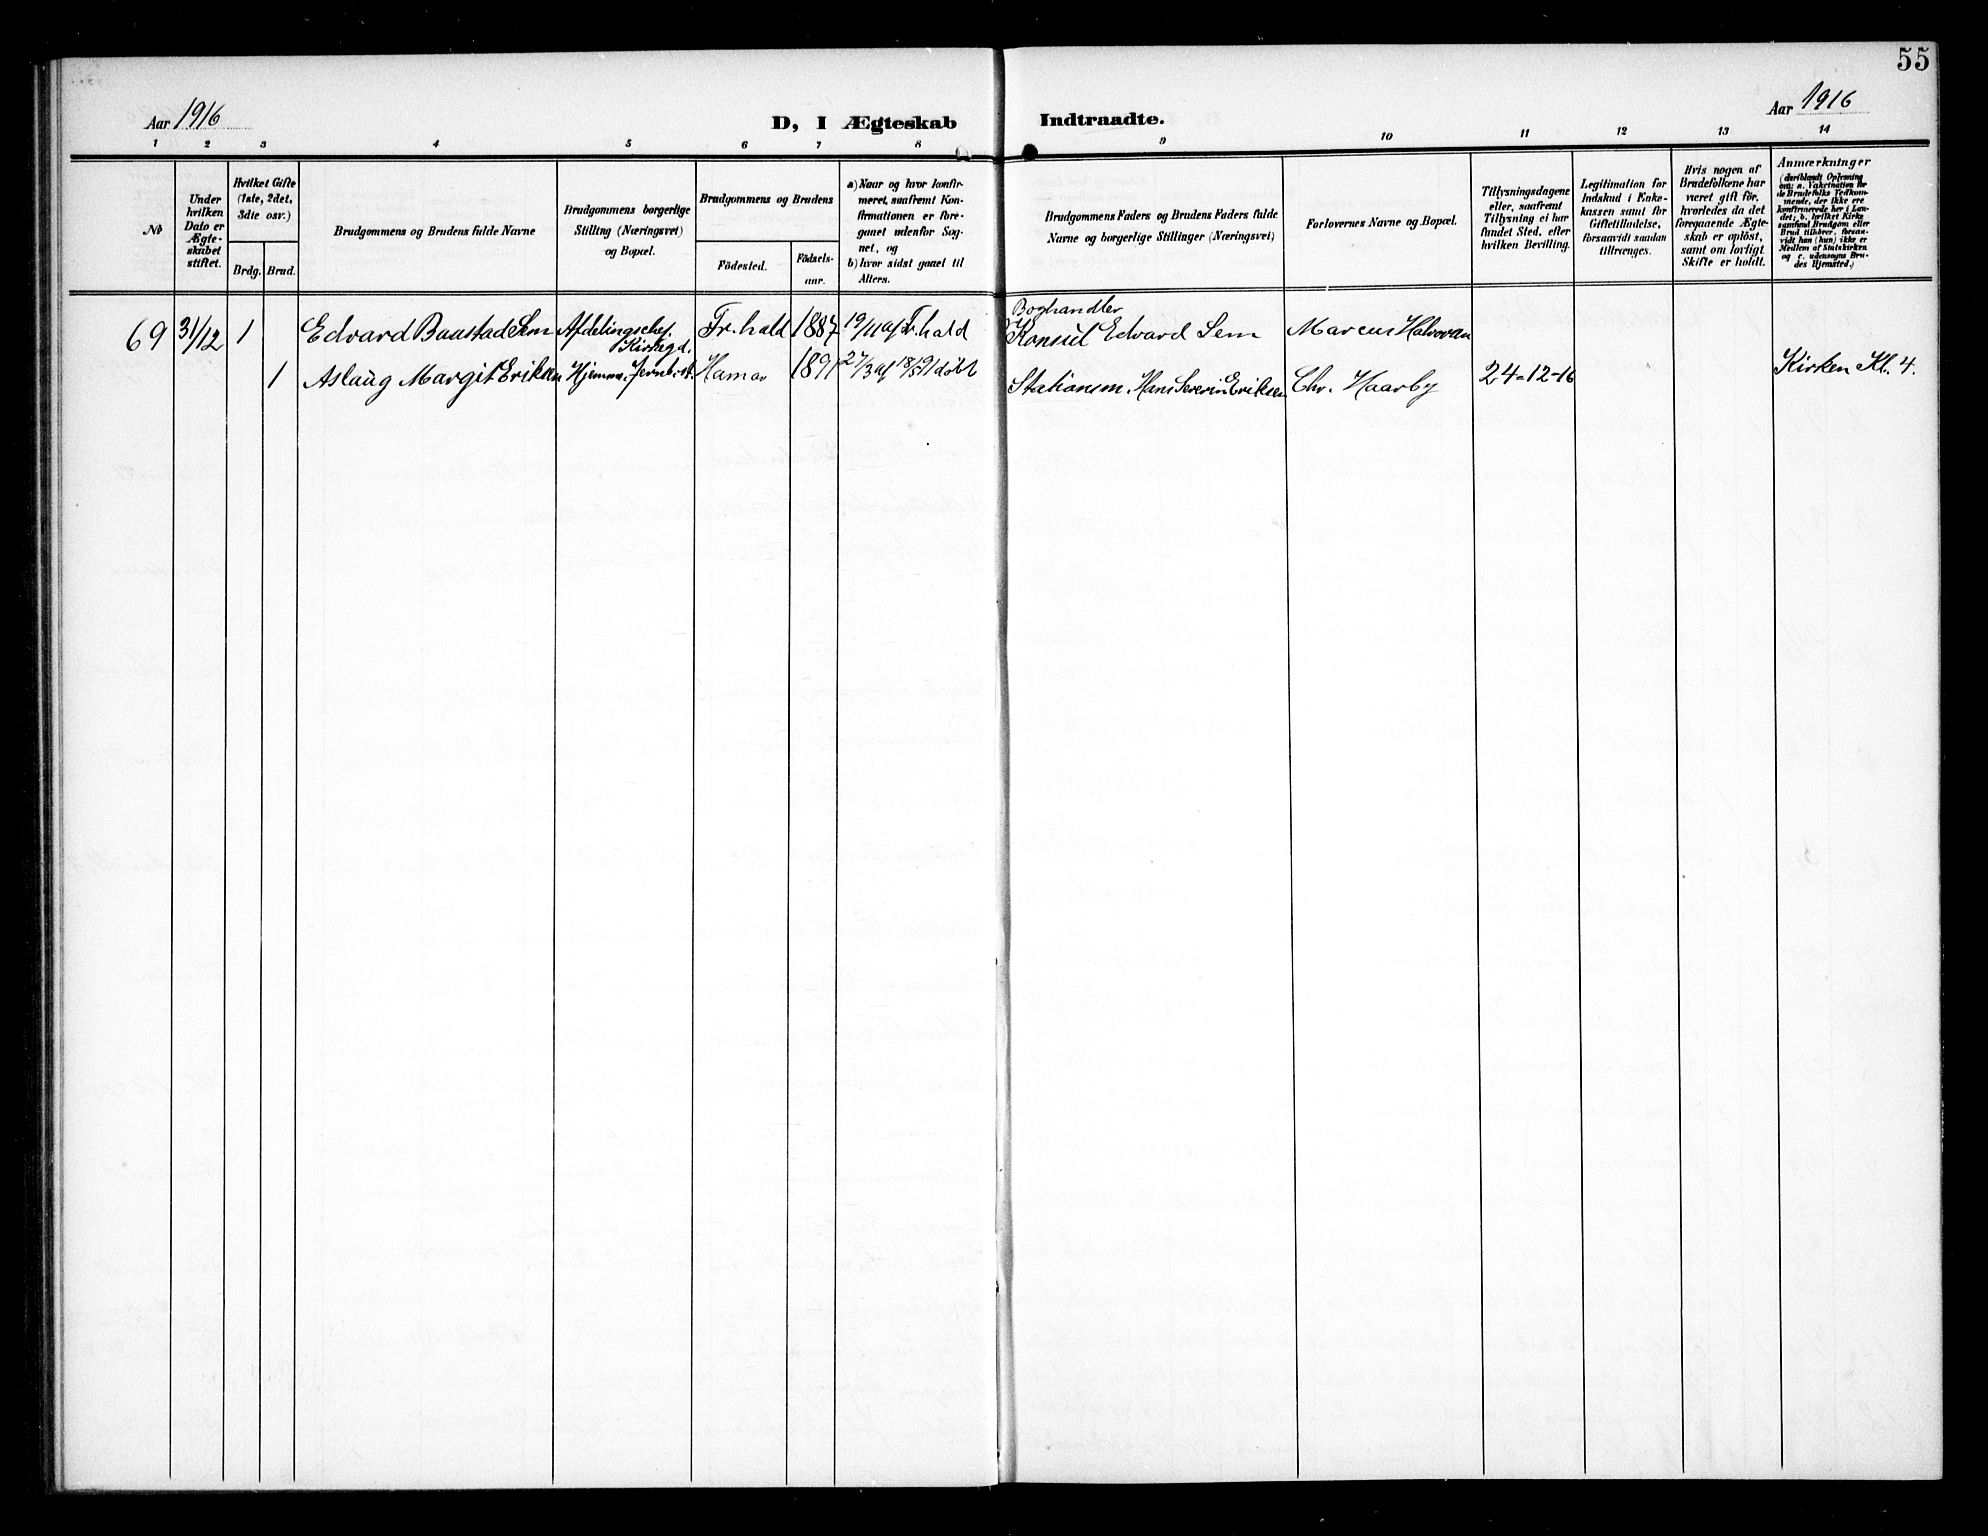 55
Aar 1916
D, I Ægteskab
Indtraadte.
Aar 1916
1 2 3 4 5 6 7 8 9 10 11 12 13 14
№
Under
hvilken
Dato er
Ægte-
skabet
stiftet.
Hvilket Gifte
(1ste, 2det,
3die osv.)
Brdg. Brud.
Brudgommens og Brudens fulde Navne
Brudgommens borgerlige
Stilling (Næringsvei)
og Bopæl.
Brudgommens og Brudens
Födested.
Födsels-
aar.
a) Naar og hvor konfir-
meret, saafremt Kon-
firmationen er fore-
gaaet udenfor Sog-
net, og
b) hvor sidst gaaet til
Alters.
Brudgommens Faders og Brudens Faders fulde
Navne og borgerlige Stillinger (Næringsvei)
Forlovernes Navne og Bopæl.
Tillysningsdagene
eller, saafremt
Tillysning ei har
fundet Sted, efter
hvilken Bevilling.
Legitimation for
Indskud i Enke-
kassen samt for
Giftetilladelse,
forsaavidt saadan
tiltrænges.
Hvis nogen af
Brudefolkene har
været gift før,
hvorledes da det
foregaaende Ægte-
skab er oplöst,
samt om lovligt
Skifte er holdt.
Anmærkninger
(deriblandt Oplysning
om: a. Vakcination for
de Brudefolks Vedkom-
mende, der ikke ere
konfirmerede her i Lan-
det; b. hvilket Kirke
samfund Brudgom eller
Brud tilhörer, forsaa-
vidt han (hun) ikke er
Medlem af Statskirken
og c. udensogns Bru-
des Hjemsted.)
69 31/12 1 Edvard Baastad Sem Afdelingschef. Fr.hald 1887 19/11 af Fr.hald
Kirkegd.
Boghandler
Konsul Edvard Sem Marcus Halvorsen
1 Aslaug Margit Eriksen Hjemme, Jernb.st. Hamar 1891 27/3 af 18/5 91 døbt
Stationsm. Hans Severin Eriksen Chr. Haarby 24-12-16 Kirken Kl. 4.